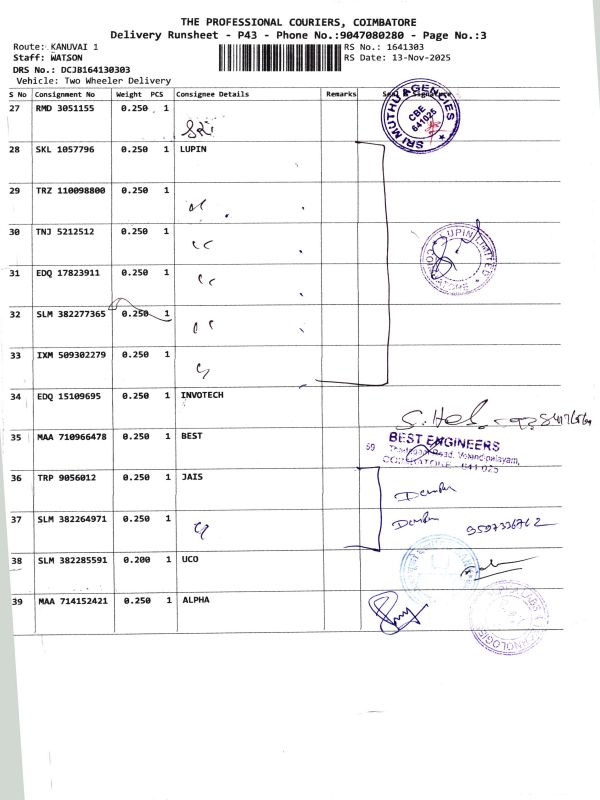 THE PROFESSIONAL COURIERS, COIMBATORE
Delivery Runsheet - P43 - Phone No.:9047080280 - Page No.:3
Route: KANUVAI 1
RS No.: 1641303
Staff: WATSON
RS Date: 13-Nov-2025
DRS No.: DCJB164130303
Vehicle: Two Wheeler Delivery
S No Consignment No Weight PCS Consignee Details Remarks Seal & Signature
27 RMD 3051155 0.250 1 SRI
SRI MUTHU AGENCIES
CBE
641025
28 SKL 1057796 0.250 1 LUPIN
29 TRZ 110098800 0.250 1
30 TNJ 5212512 0.250 1
LUPIN LIMITED
COIMBATORE
31 EDQ 17823911 0.250 1
32 SLM 382277365 0.250 1
33 IXM 509302279 0.250 1
34 EDQ 15109695 0.250 1 INVOTECH
35 MAA 710966478 0.250 1 BEST
BEST ENGINEERS
59
Road,
COIMBATORE - 641 025
36 TRP 9056012 0.250 1 JAIS
37 SLM 382264971 0.250 1
38 SLM 382285591 0.200 1 UCO
39 MAA 714152421 0.250 1 ALPHA